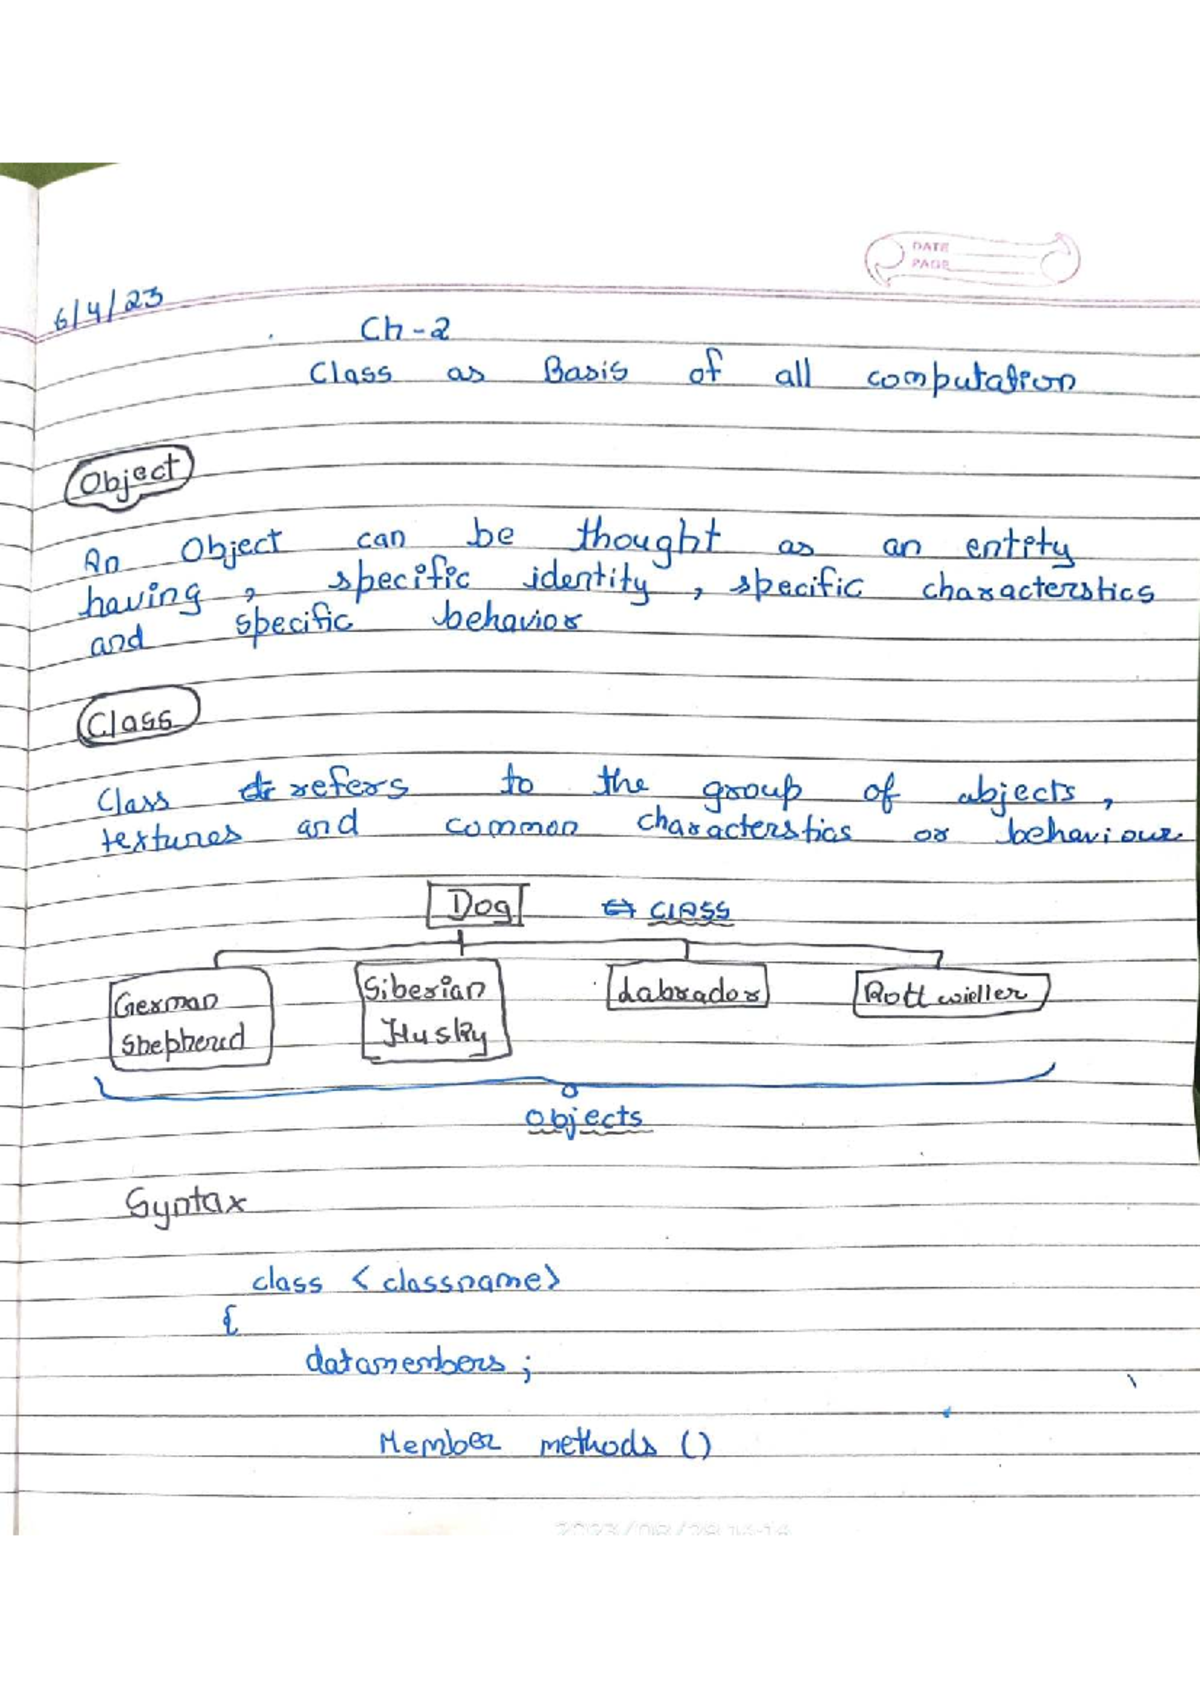 DATE
PAGE
6/4/23
Ch-2
Class as Basis of all computation
Object
An Object can be thought as an entity
having, specific identity, specific characterstics
and specific behavior
Class
Class refers to the group of objects,
textures and common characterstics or behaviour
Dog ↔ CLASS
German Shepherd
Siberian Husky
Labrador
Rottwieller
objects
Syntax
class <classname>
{
datamembers;
Member methods ()